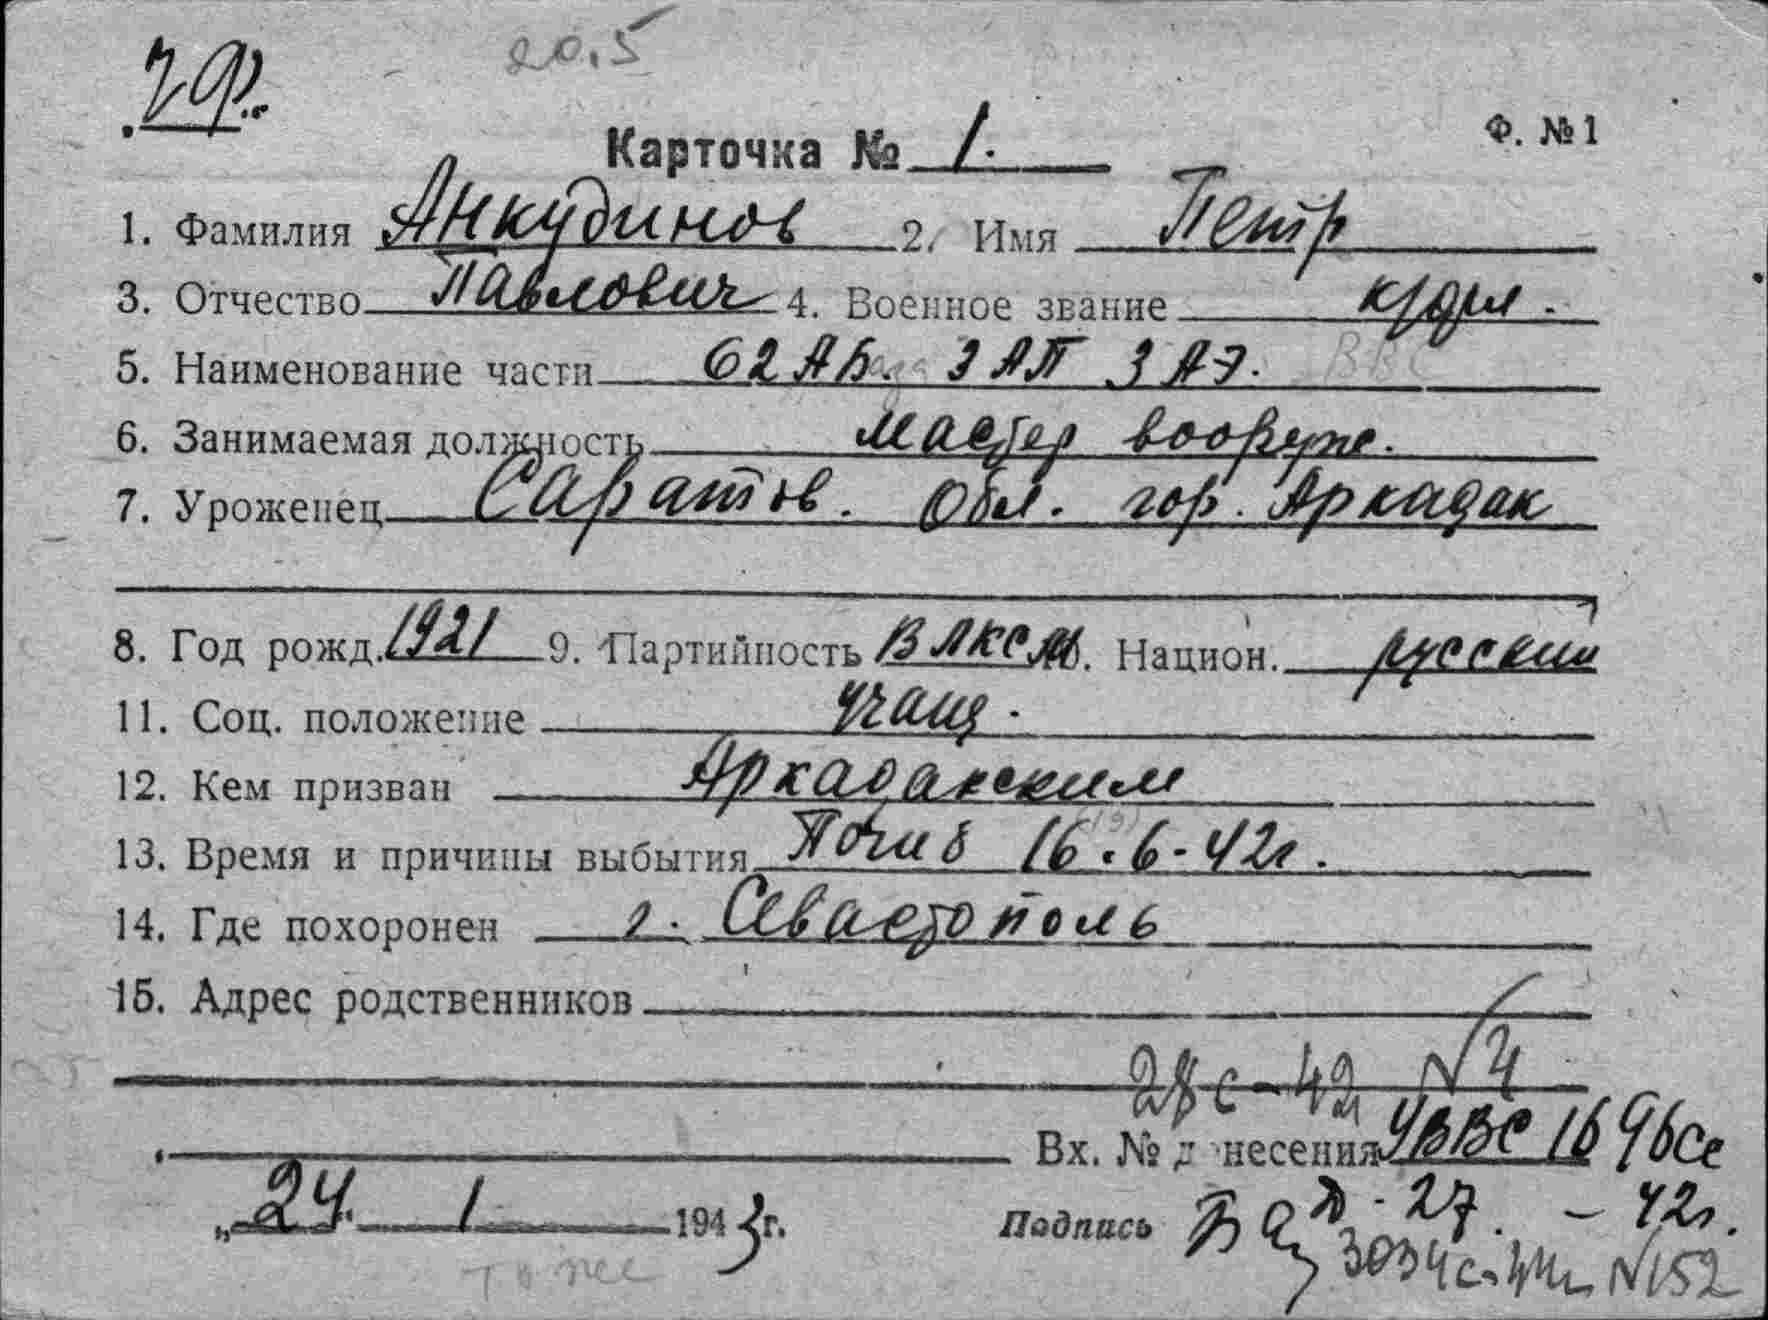 20.5
ЧФ.
Ф. №1
Карточка № 1.
1. Фамилия Анкудинов 2. Имя Петр
3. Отчество Павлович 4. Военное звание кр/фл.
5. Наименование части 62 АБ. 3 АП 3 АЭ. ВВС
6. Занимаемая должность мастер вооруж.
7. Уроженец Саратов. Обл. гор. Аркадак
8. Год рожд. 1921 9. Партийность ВЛКСМ. Национ. русский
11. Соц. положение учащ.
12. Кем призван Аркадакским
13. Время и причины выбытия Погиб 16.6-42г.
14. Где похоронен г. Севастополь
15. Адрес родственников
28с-42 N4
Вх. № д несения УВВС 1696сс
„24" 1 1943г. Подпись Д-27. - 42г.
то же 3034с-44г N152